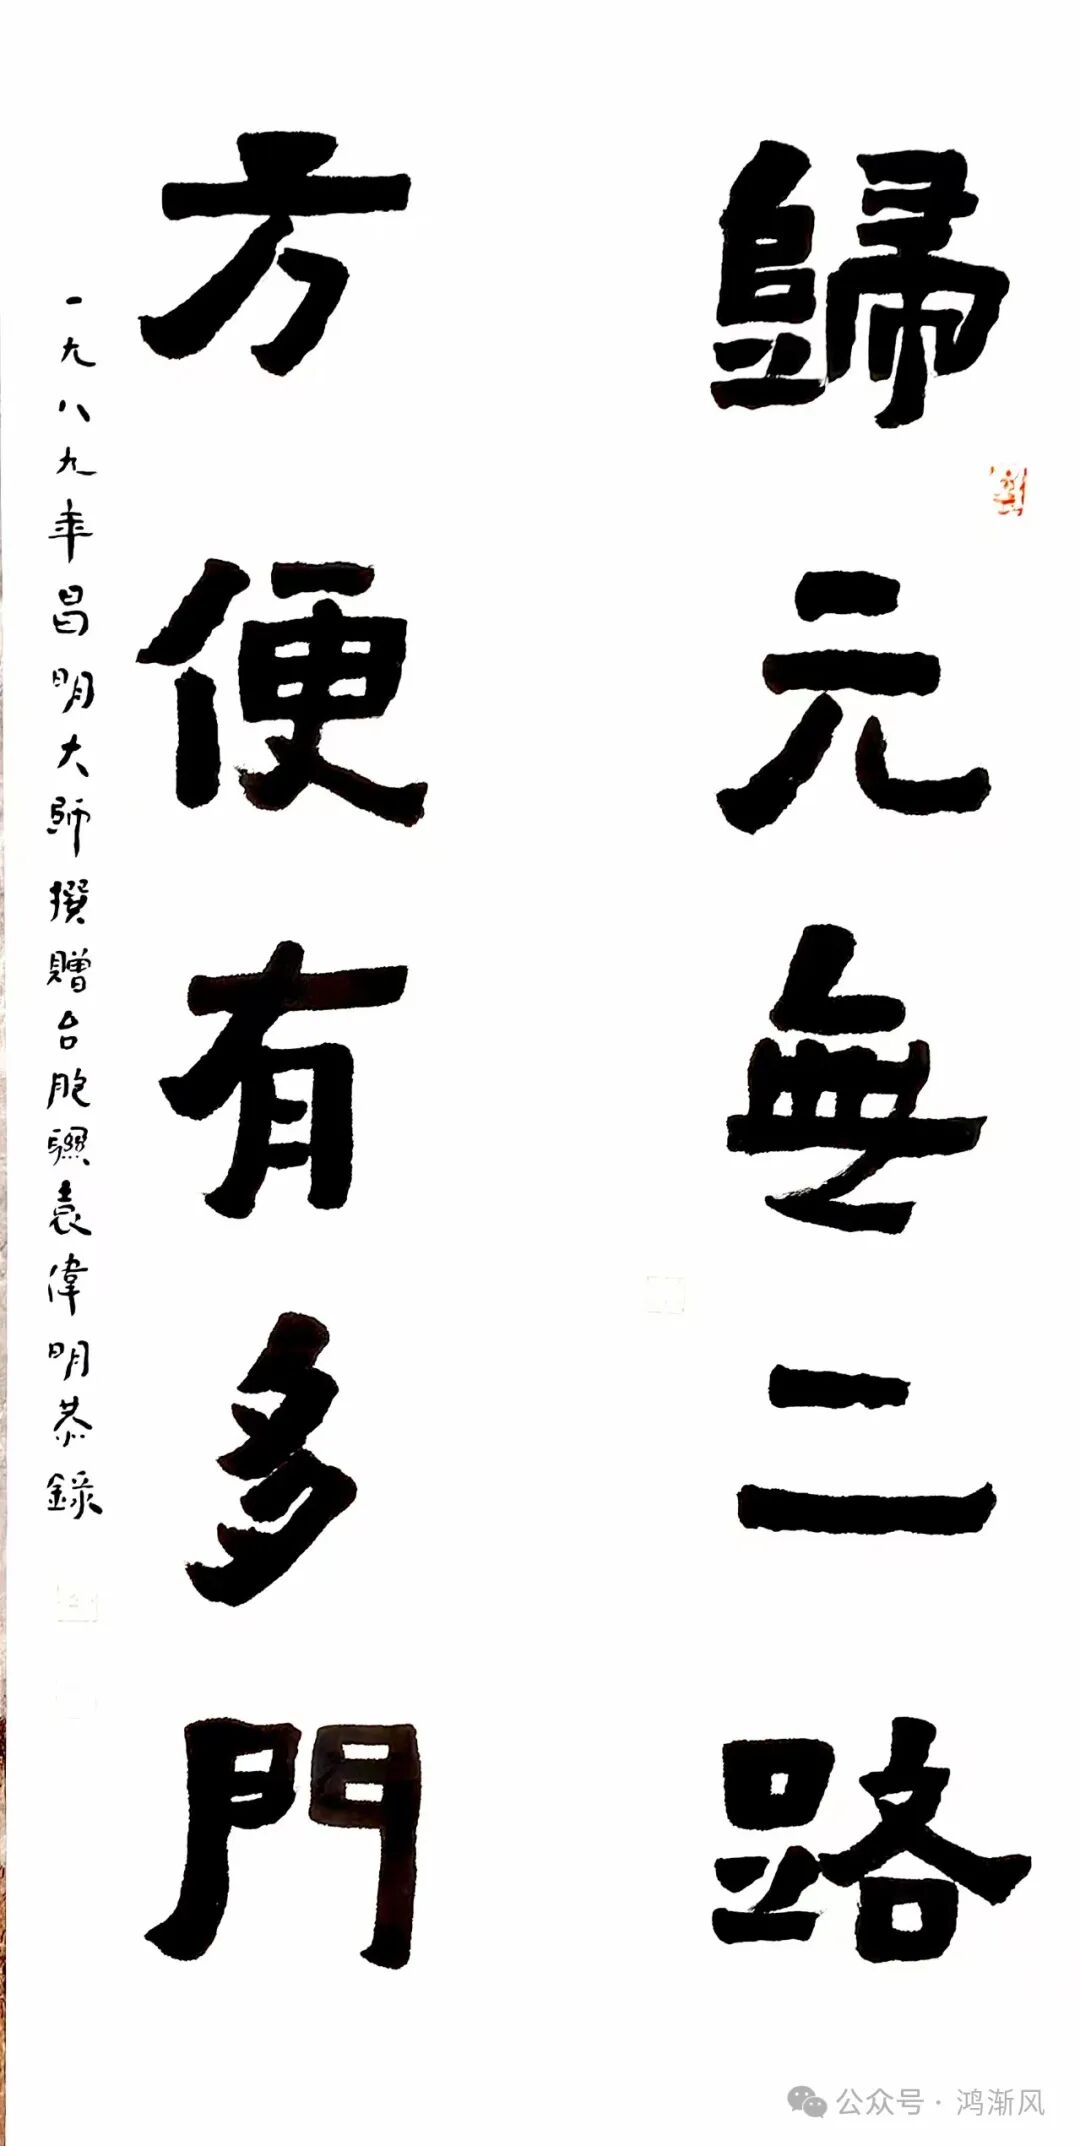 歸元無二路
方便有多門
一九八九年昌明大師撰贈台胞聯袁偉明恭錄
公众号·鸿渐风